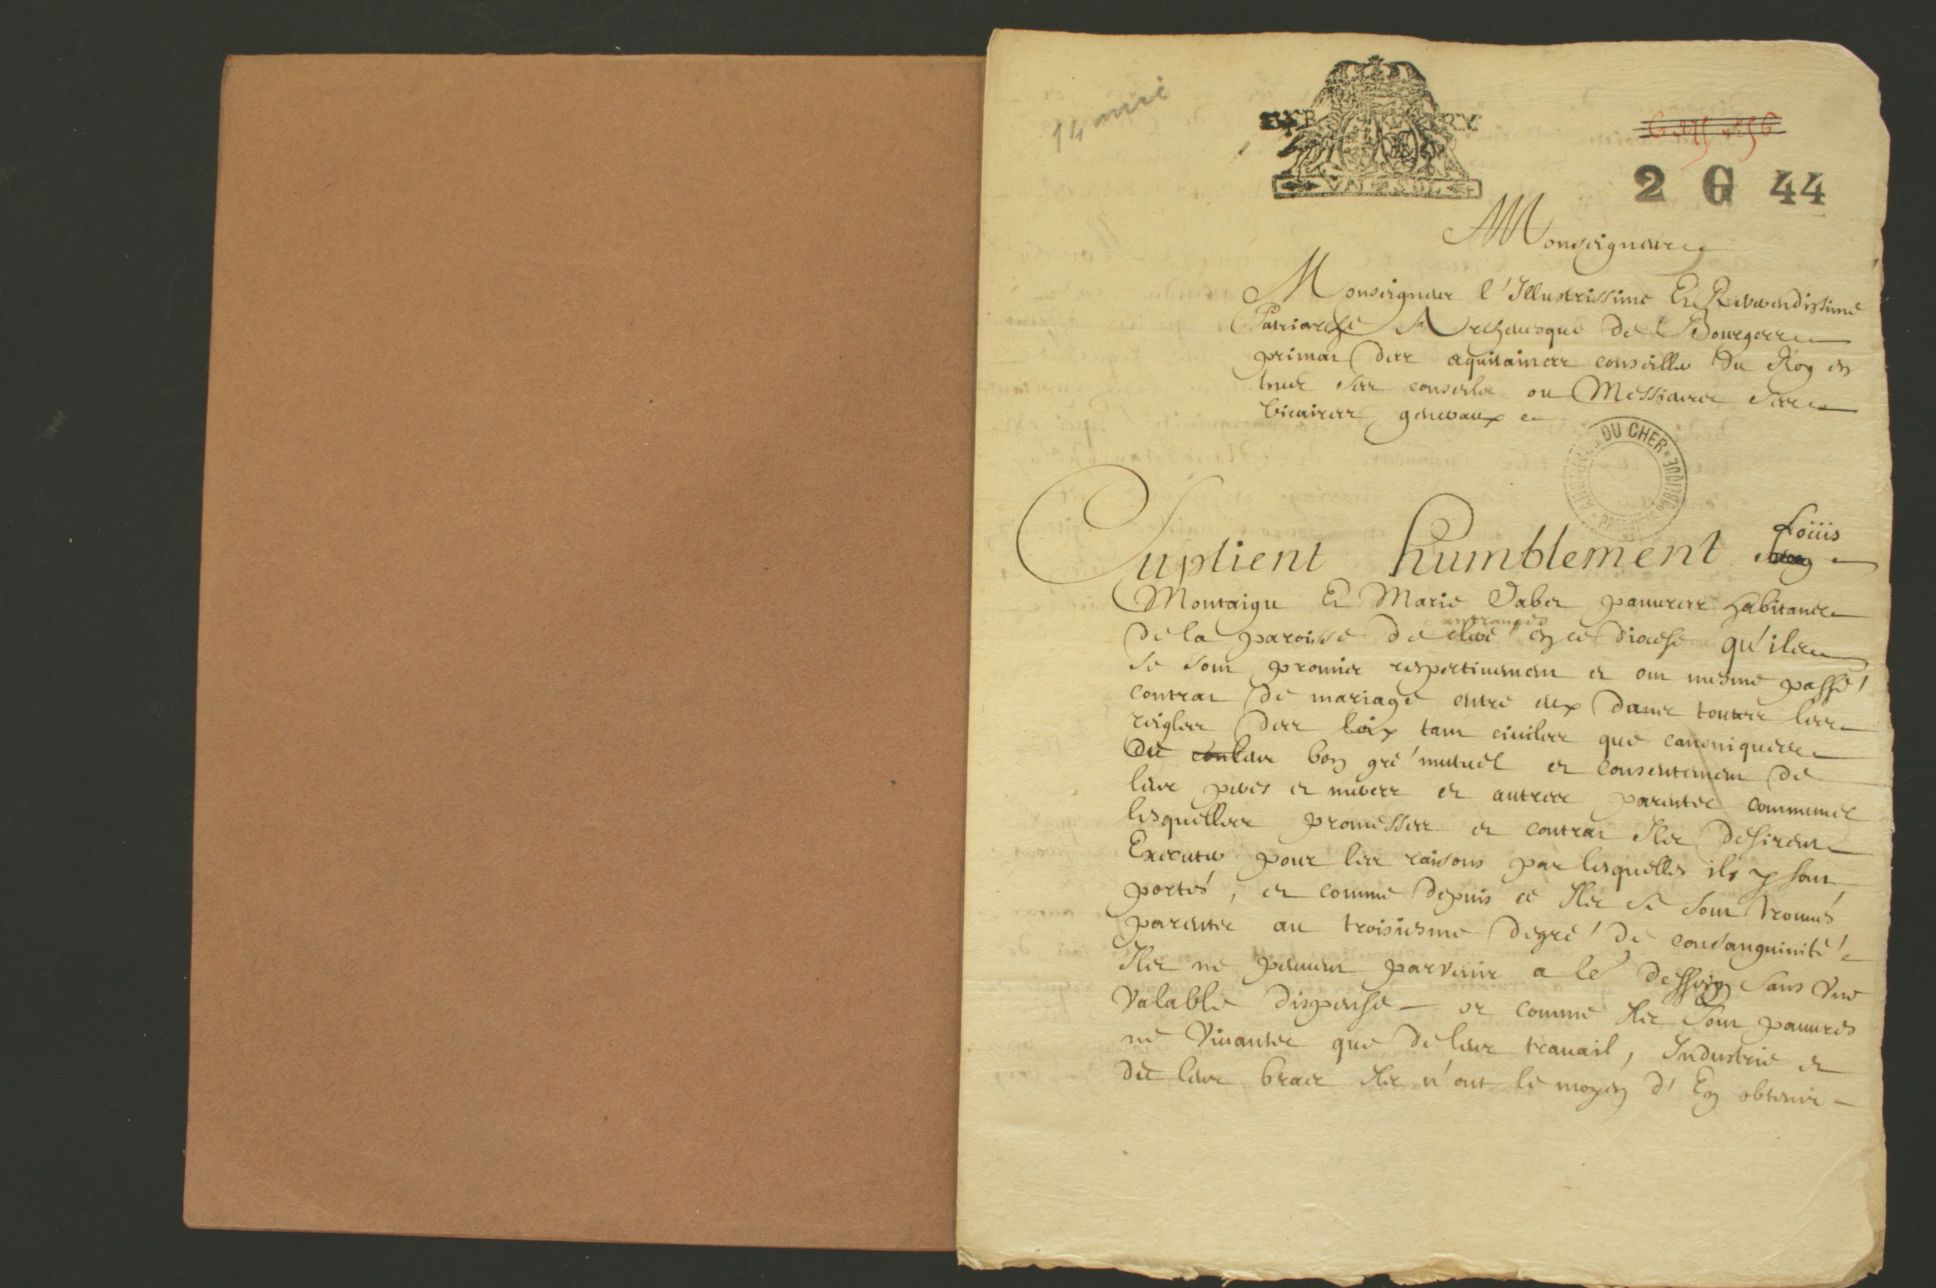 14 avril
BERRY
2 G 44
Monseigneur
Monseigneur l'Illustrissime Et Reverendissime
Patriarche Archevesque de Bourges
primat des aquitaines conseiller du Roy en
tous ses conseils ou Messieurs ses
vicaires generaux
ARCHIVES DU CHER
Suplient humblement Loüis
Montaigu Et Marie Taber pauvres habitants
antranges
de la paroisse de en ce diocese qu'ils
se sont promis respectivement et ont mesme passé
contrat de mariage entre eux dans toutes les
reigles des loix tant civiles que canoniques
de leur bon gré mutuel et consentement de
leur peres et meres et autres parents communs
lesquelles promesses et contrat Ils desirent
Executer pour les raisons par lesquelles ils y sont
portés, et comme depuis ce Ils se sont trouvés
parents au troisiesme degré de consanguinité
Ils ne peuvent parvenir a le dessein sans une
valable dispense — or comme Ils sont pauvres
ne vivants que de leur travail, Industrie et
de leur bras Ils n'ont le moyen d'En obtenir —